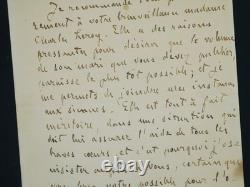 Je recommande
rement à votre bienveillance madame
Charles Leroy. Elle a des raisons
pressantes pour désirer que le volume
de son mari que vous devez publier,
paraisse le plus tôt possible; et je
me permets de joindre mes instances
aux siennes. Elle est tout à fait
méritoire, dans une situation qui
doit lui assurer l'aide de tous les
braves cœurs et c'est pourquoi je
insister auprès de vous, certain que
votre possible pour l'